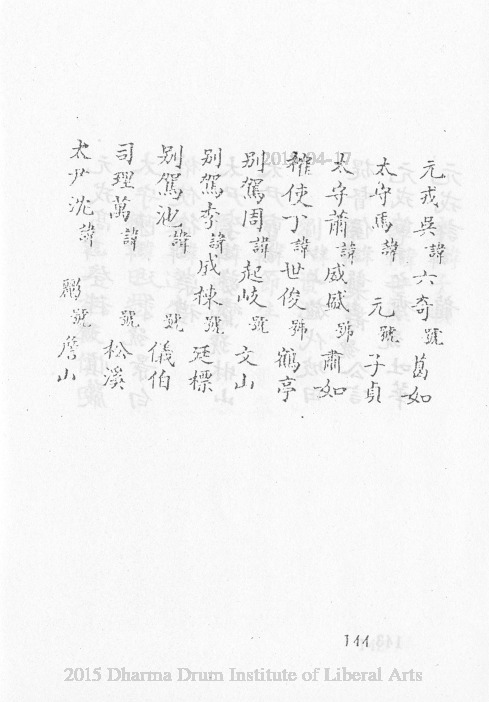 元戎吳諱六奇號葛如
太守馬諱 元號子貞
太守蕭諱威號肅如
榷使丁諱世俊號鶴亭
別駕周諱起岐號文山
別駕李諱成棟號廷標
別駕池諱 號儀伯
司理萬諱 號松溪
太尹沈諱 號詹山
144
2015 Dharma Drum Institute of Liberal Arts